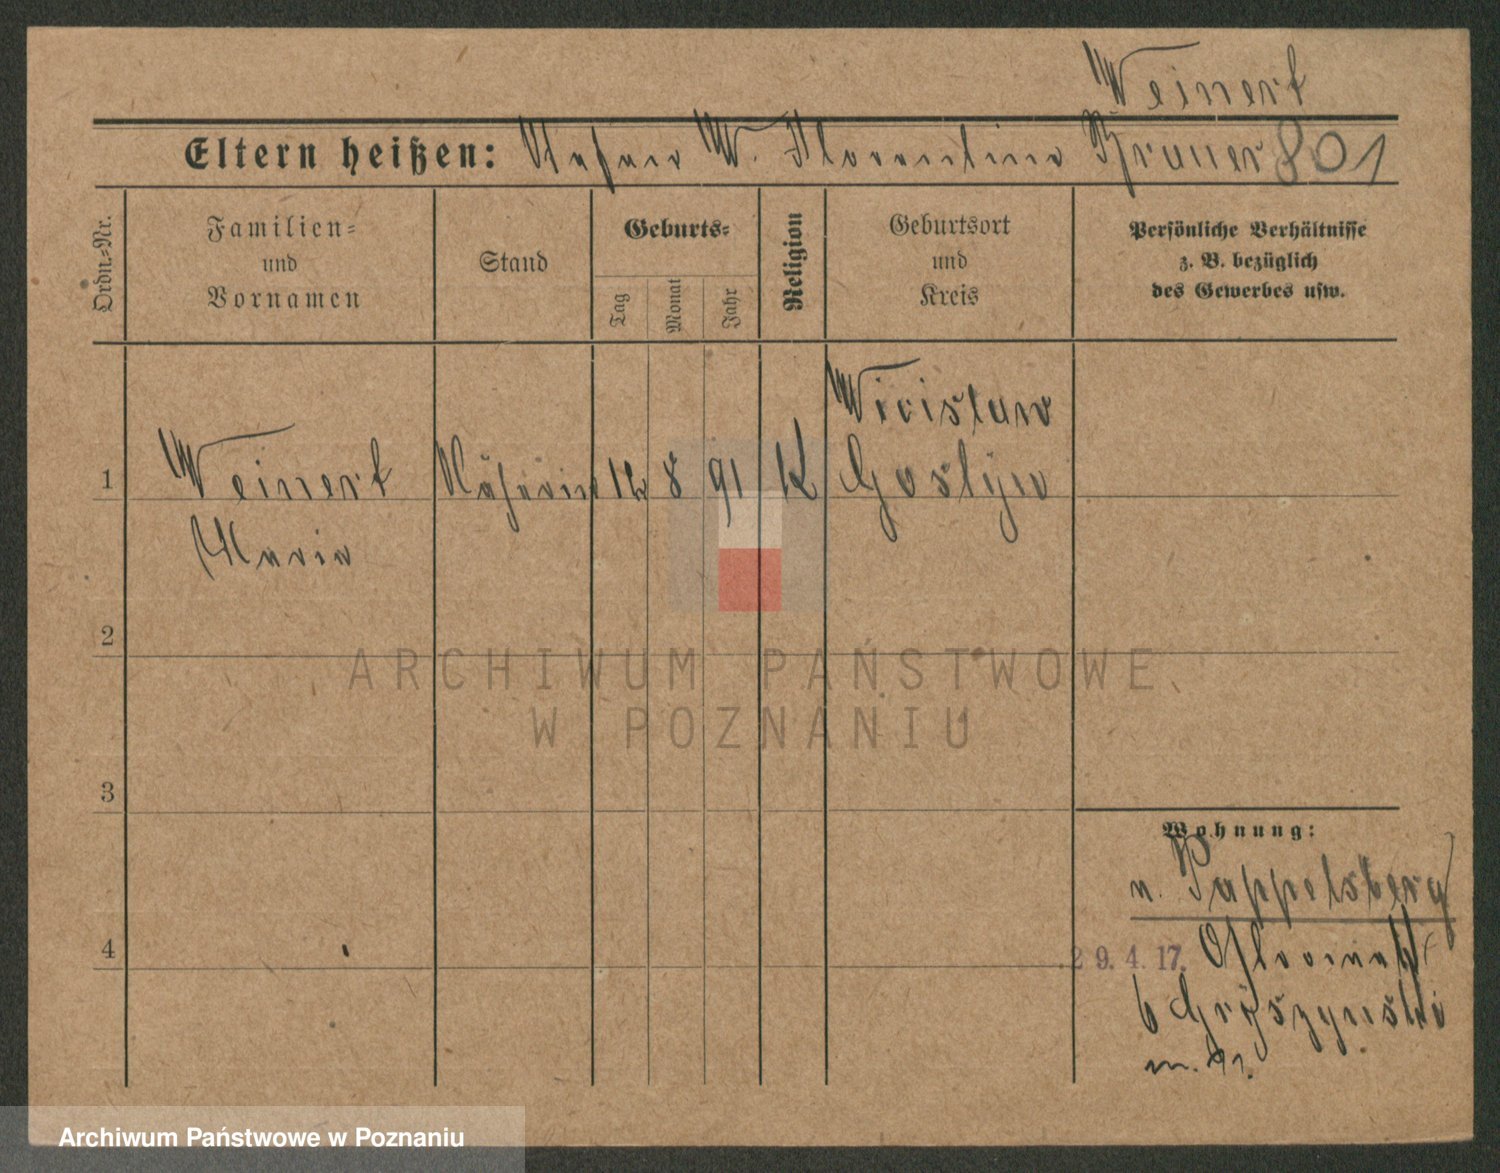 Weinert
Eltern heißen: Stefan W. Florentine Kramer 801
Ordn.-Nr.
Familien-
und
Vornamen
Stand
Geburts-
Tag
Monat
Jahr
Religion
Geburtsort
und
Kreis
Persönliche Verhältnisse
z. B. bezüglich
des Gewerbes usw.
Weinert
1
Maria
Näherin
12 8 91 K
Gostyn
2
3
4
Wohnung:
n. Pappelsberg
29.4.17.
6
ARCHIWUM PAŃSTWOWE
W POZNANIU
Archiwum Państwowe w Poznaniu